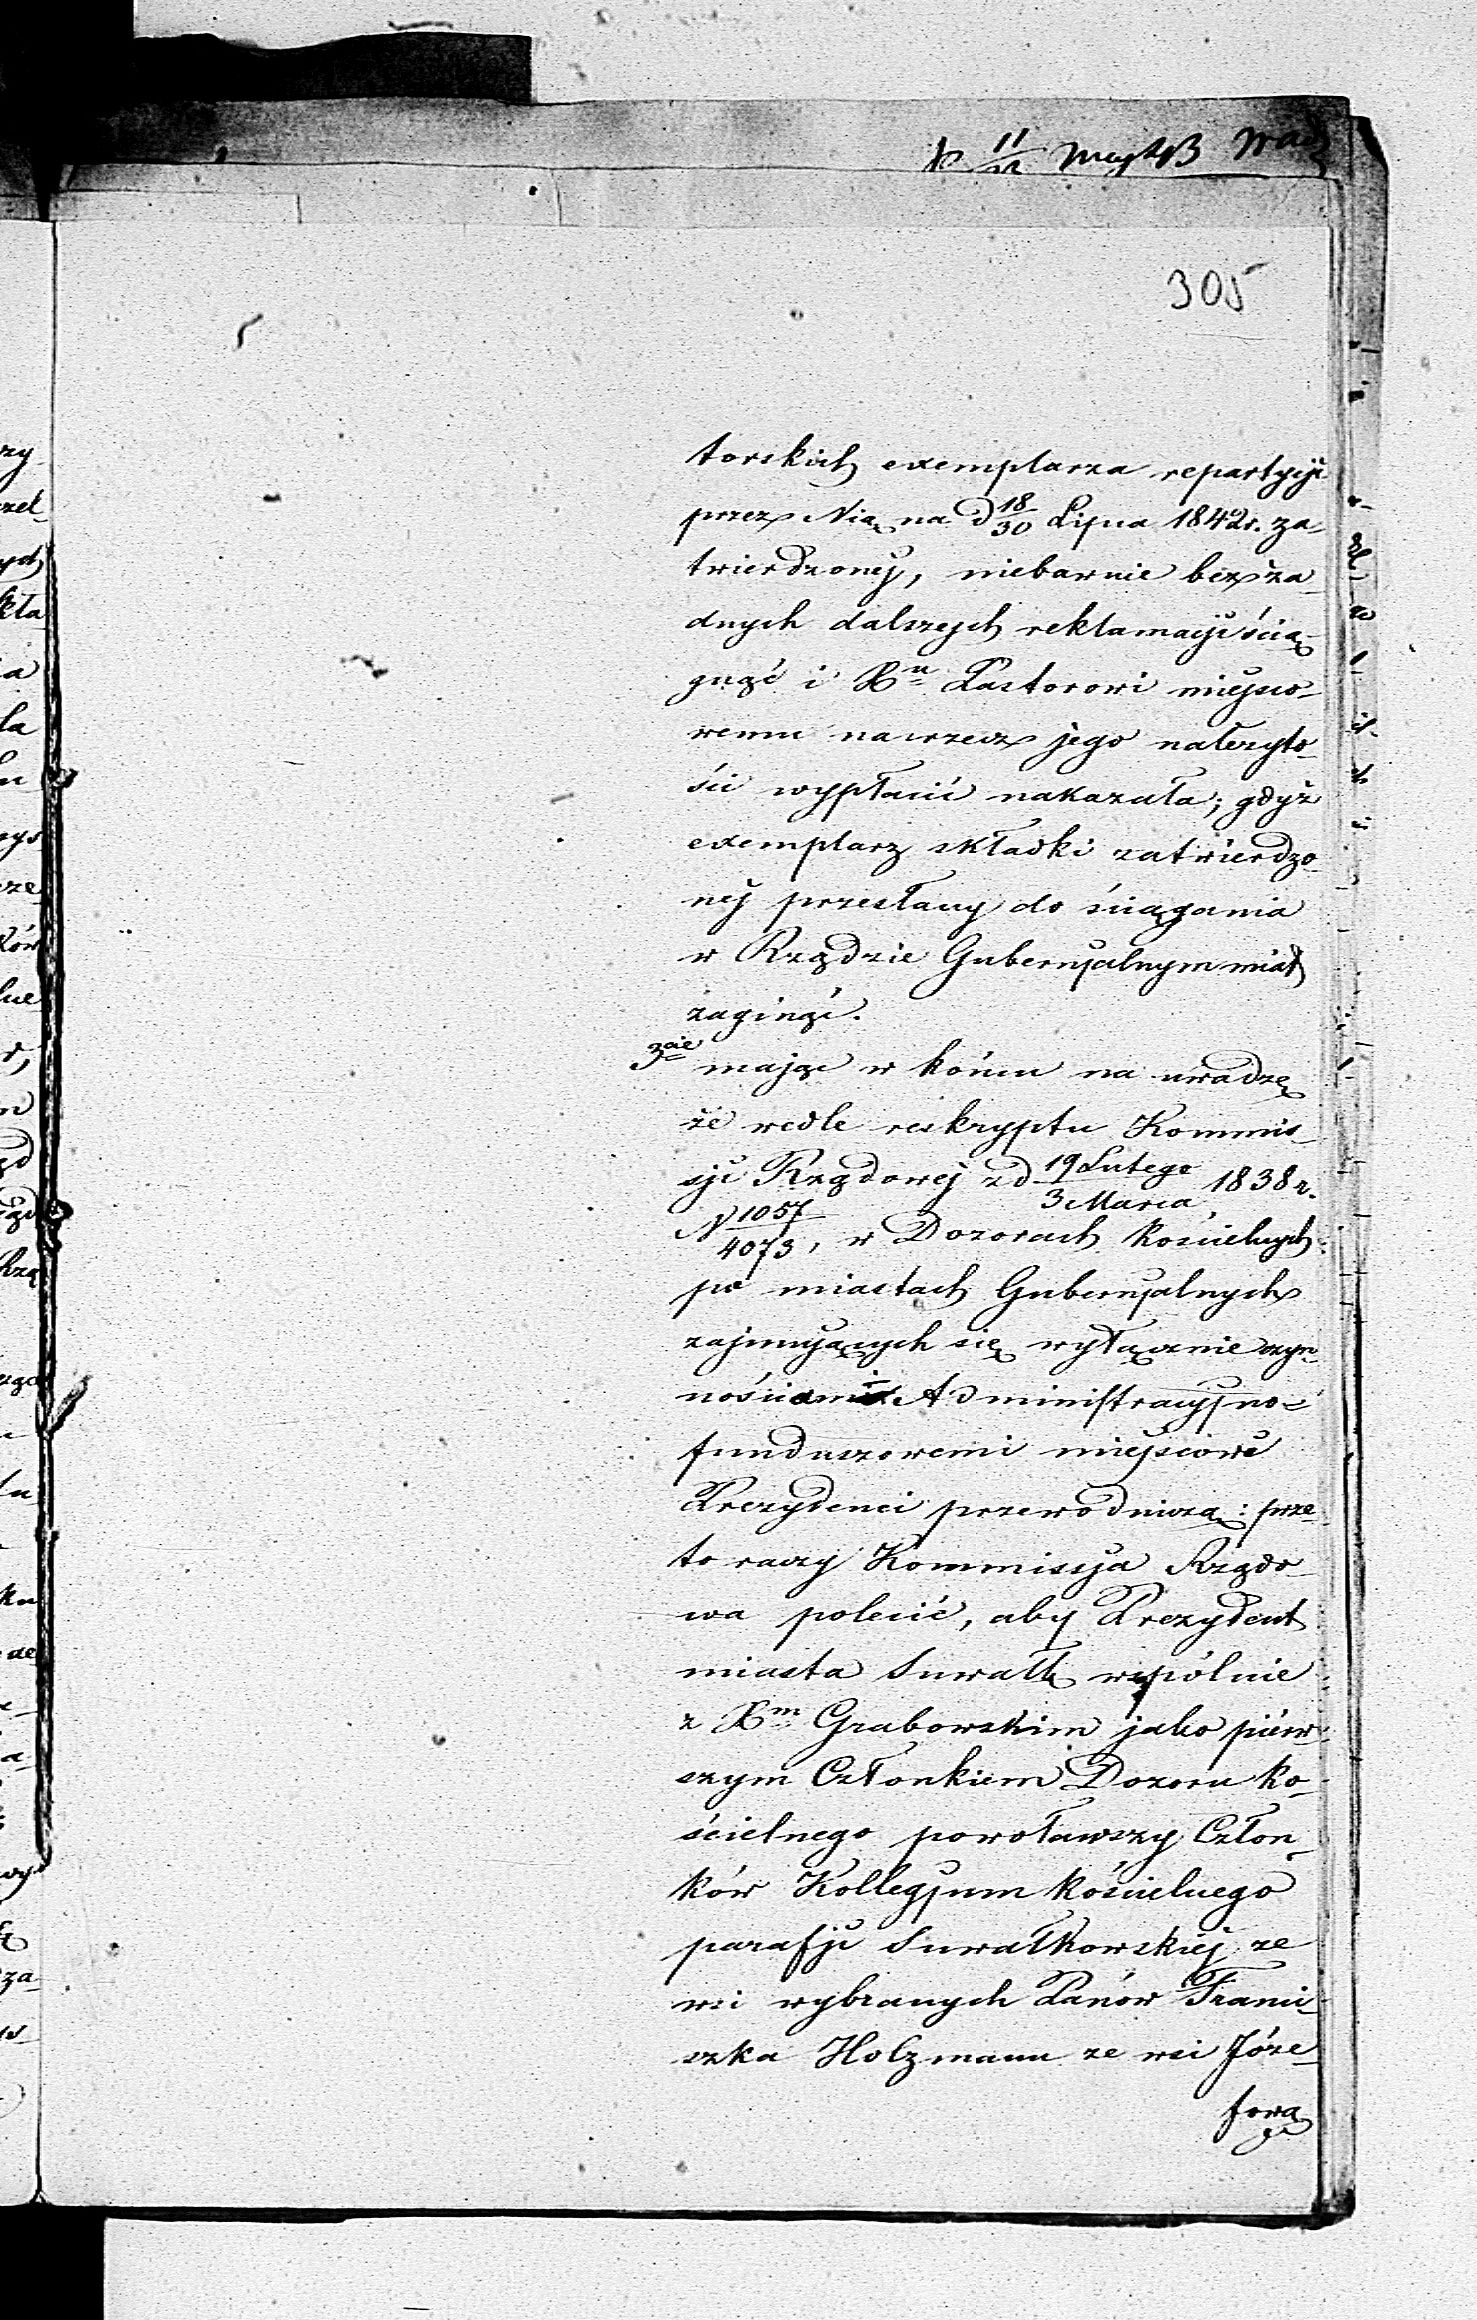 305
torskich exemplarza repartycyi
przez Nią na d 18/30 Lipca 1842 r. za-
twierdzonej, niebawnie bez ża-
dnych dalszych reklamacyi ścią-
gnąć i Xu Pastorowi miejsco-
wemu na rzecz jego należyto-
ści wypłacić nakazała; gdyż
exemplarz składki zatwierdzo-
nej przesłany do ściągania
w Rządzie Gubernjalnym miał
zaginąć.
3cie mając w końcu na uwadze
że wedle reskryptu Kommis-
syi Rządowej z d 19 Lutego/3 Marca 1838 r.
N 1057/4073, w Dozorach kościelnych
po miastach Gubernjalnych
zajmujących się wyłącznie czyn-
nościami Administracyjno-
funduszowemi miejscowi
Prezydenci przewodniczą: prze-
to raczy Kommissya Rządo-
wa polecić, aby Prezydent
miasta Suwałk wspólnie
z Xm Grabowskim jako pierw-
szym Członkiem Dozoru ko-
ścielnego powoławszy Człon-
ków Kollegjum kościelnego
parafji Suwałkowskiej ze
wsi wybranych Panów Franci-
szka Holzmann ze wsi Józe-
fowa